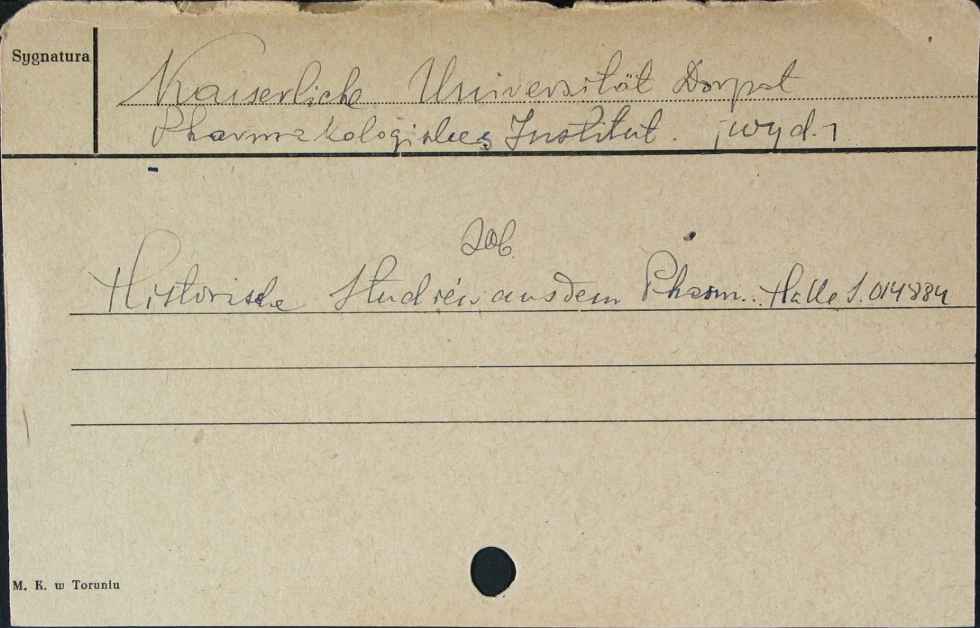 Sygnatura
Kaiserliche Universität Dorpat
Pharmakologisches Institut. [wyd.]
zob.
Historische Studien aus dem Pharm.. Halle S. 014884
M. K. w Toruniu